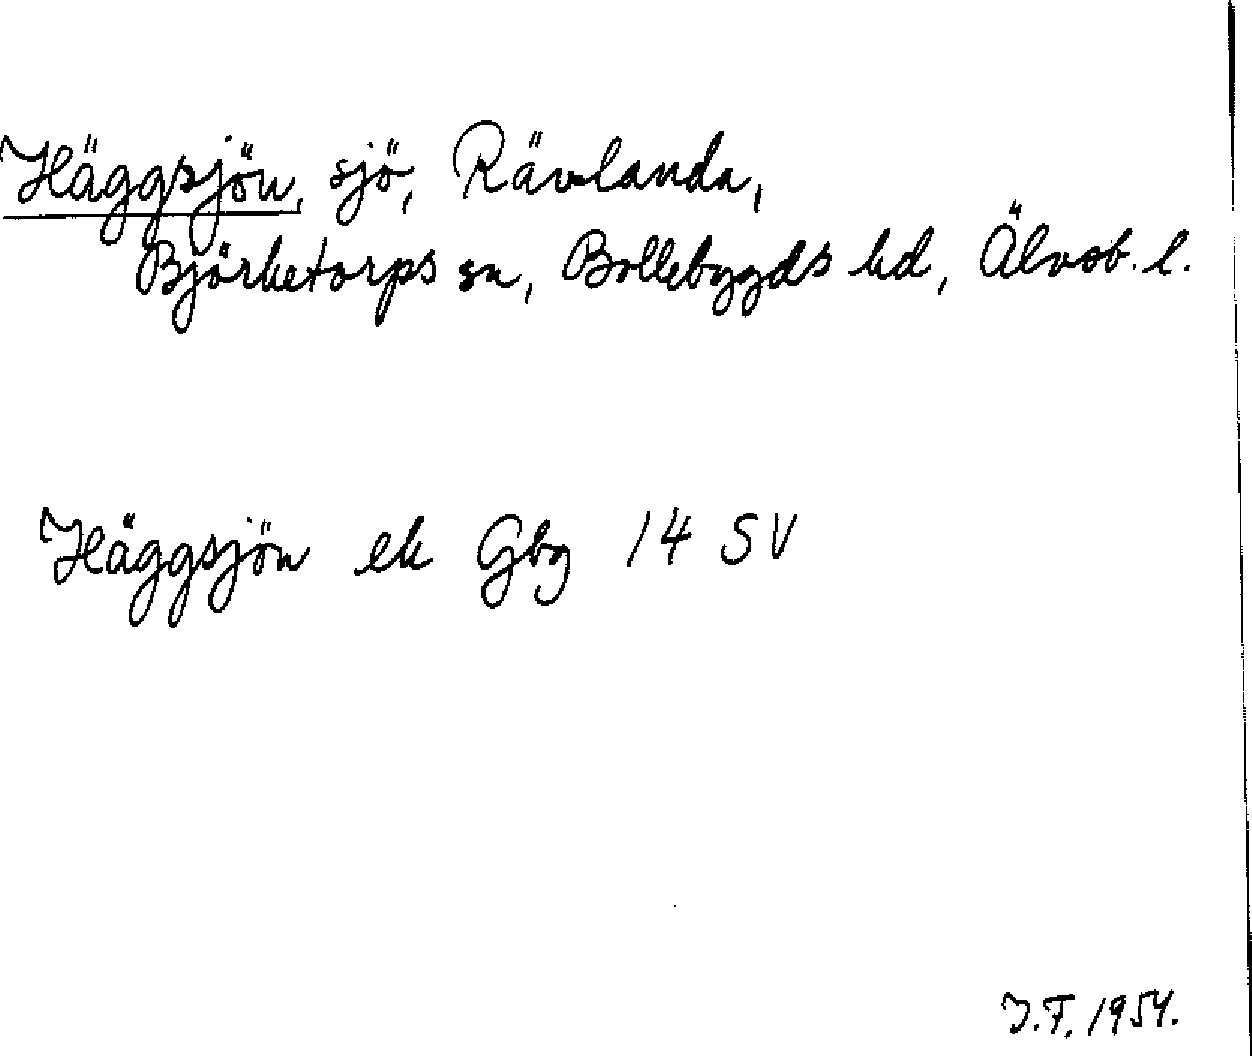 Häggsjön, sjö, Rävlanda,
Björketorps sn, Bollebygds hd, Älvsb. l.
Häggsjön ek Gbg 14 SV
J.F. 1954.